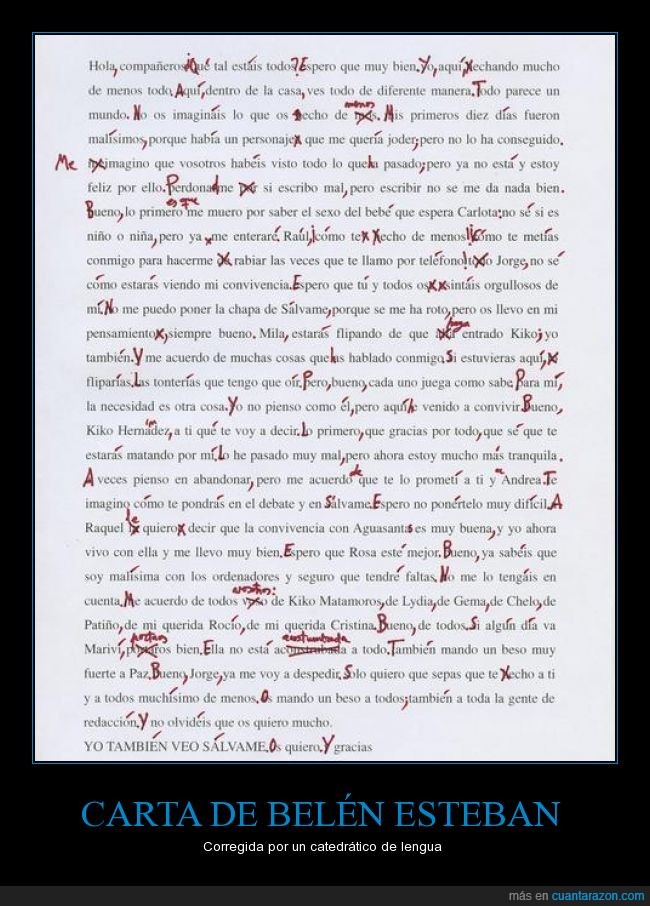 Hola, compañeros, ¡Qué tal estáis todos? Espero que muy bien. Yo, aquí, echando mucho
de menos todo. Aquí, dentro de la casa, ves todo de diferente manera. Todo parece un
mundo. No os imagináis lo que os hecho de menos. Mis primeros diez días fueron
malísimos, porque había un personaje que me quería joder; pero no lo ha conseguido.
Me imagino que vosotros habéis visto todo lo que ha pasado; pero ya no está y estoy
feliz por ello. Perdonadme si escribo mal, pero escribir no se me da nada bien.
Bueno, lo primero es que me muero por saber el sexo del bebé que espera Carlota: no sé si es
niño o niña, pero ya me enteraré. Raúl, ¡cómo te echo de menos! ¡Cómo te metías
conmigo para hacerme rabiar las veces que te llamo por teléfono! Jorge, no sé
cómo estarás viendo mi convivencia. Espero que tú y todos os sintáis orgullosos de
mí. No me puedo poner la chapa de Sálvame, porque se me ha roto, pero os llevo en mi
pensamiento, siempre bueno. Mila, estarás flipando de que haya entrado Kiko; yo
también. Y me acuerdo de muchas cosas que has hablado conmigo. Si estuvieras aquí,
fliparías. Las tonterías que tengo que oír. Pero, bueno, cada uno juega como sabe. Para mí,
la necesidad es otra cosa. Yo no pienso como él, pero aquí he venido a convivir. Bueno,
Kiko Hernández, a ti qué te voy a decir. Lo primero, que gracias por todo, que sé que te
estarás matando por mí. Lo he pasado muy mal, pero ahora estoy mucho más tranquila.
A veces pienso en abandonar, pero me acuerdo de que te lo prometí a ti y a Andrea. Te
imagino cómo te pondrás en el debate y en Sálvame. Espero no ponértelo muy difícil. A
Raquel le quiero decir que la convivencia con Aguasantas es muy buena, y yo ahora
vivo con ella y me llevo muy bien. Espero que Rosa esté mejor. Bueno, ya sabéis que
soy malísima con los ordenadores y seguro que tendré faltas. No me lo tengáis en
cuenta. Me acuerdo de todos vosotros: de Kiko Matamoros, de Lydia, de Gema, de Chelo, de
Patiño, de mi querida Rocío, de mi querida Cristina. Bueno, de todos. Si algún día va
Mariví, portaros bien. Ella no está acostumbrada a todo. También mando un beso muy
fuerte a Paz. Bueno, Jorge, ya me voy a despedir. Solo quiero que sepas que te echo a ti
y a todos muchísimo de menos. Os mando un beso a todos; también a toda la gente de
redacción. Y no olvidéis que os quiero mucho.
YO TAMBIÉN VEO SÁLVAME. Os quiero. Y gracias
CARTA DE BELÉN ESTEBAN
Corregida por un catedrático de lengua
más en cuantarazon.com